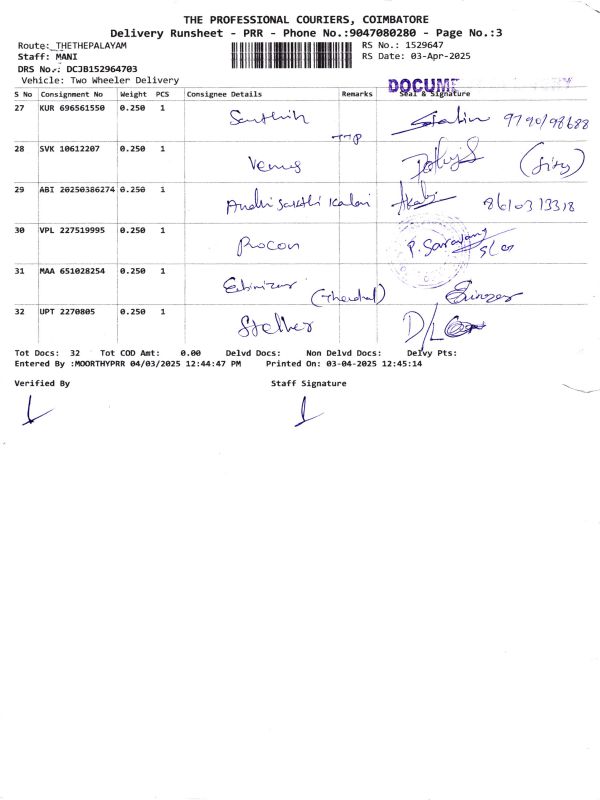 THE PROFESSIONAL COURIERS, COIMBATORE
Delivery Runsheet - PRR - Phone No.:9047080280 - Page No.:3
Route: THETHEPALAYAM RS No.: 1529647
Staff: MANI RS Date: 03-Apr-2025
DRS No.: DCJB152964703
Vehicle: Two Wheeler Delivery
DOCUME
S No Consignment No Weight PCS Consignee Details Remarks Seal & Signature
27 KUR 696561550 0.250 1 Santhih
28 SVK 10612207 0.250 1 Venus
29 ABI 20250386274 0.250 1 8610313318
30 VPL 227519995 0.250 1 Procon P. Saravang
31 MAA 651028254 0.250 1
32 UPT 2270805 0.250 1 D/L
Tot Docs: 32 Tot COD Amt: 0.00 Delvd Docs: Non Delvd Docs: Delvy Pts:
Entered By :MOORTHYPRR 04/03/2025 12:44:47 PM Printed On: 03-04-2025 12:45:14
Verified By Staff Signature